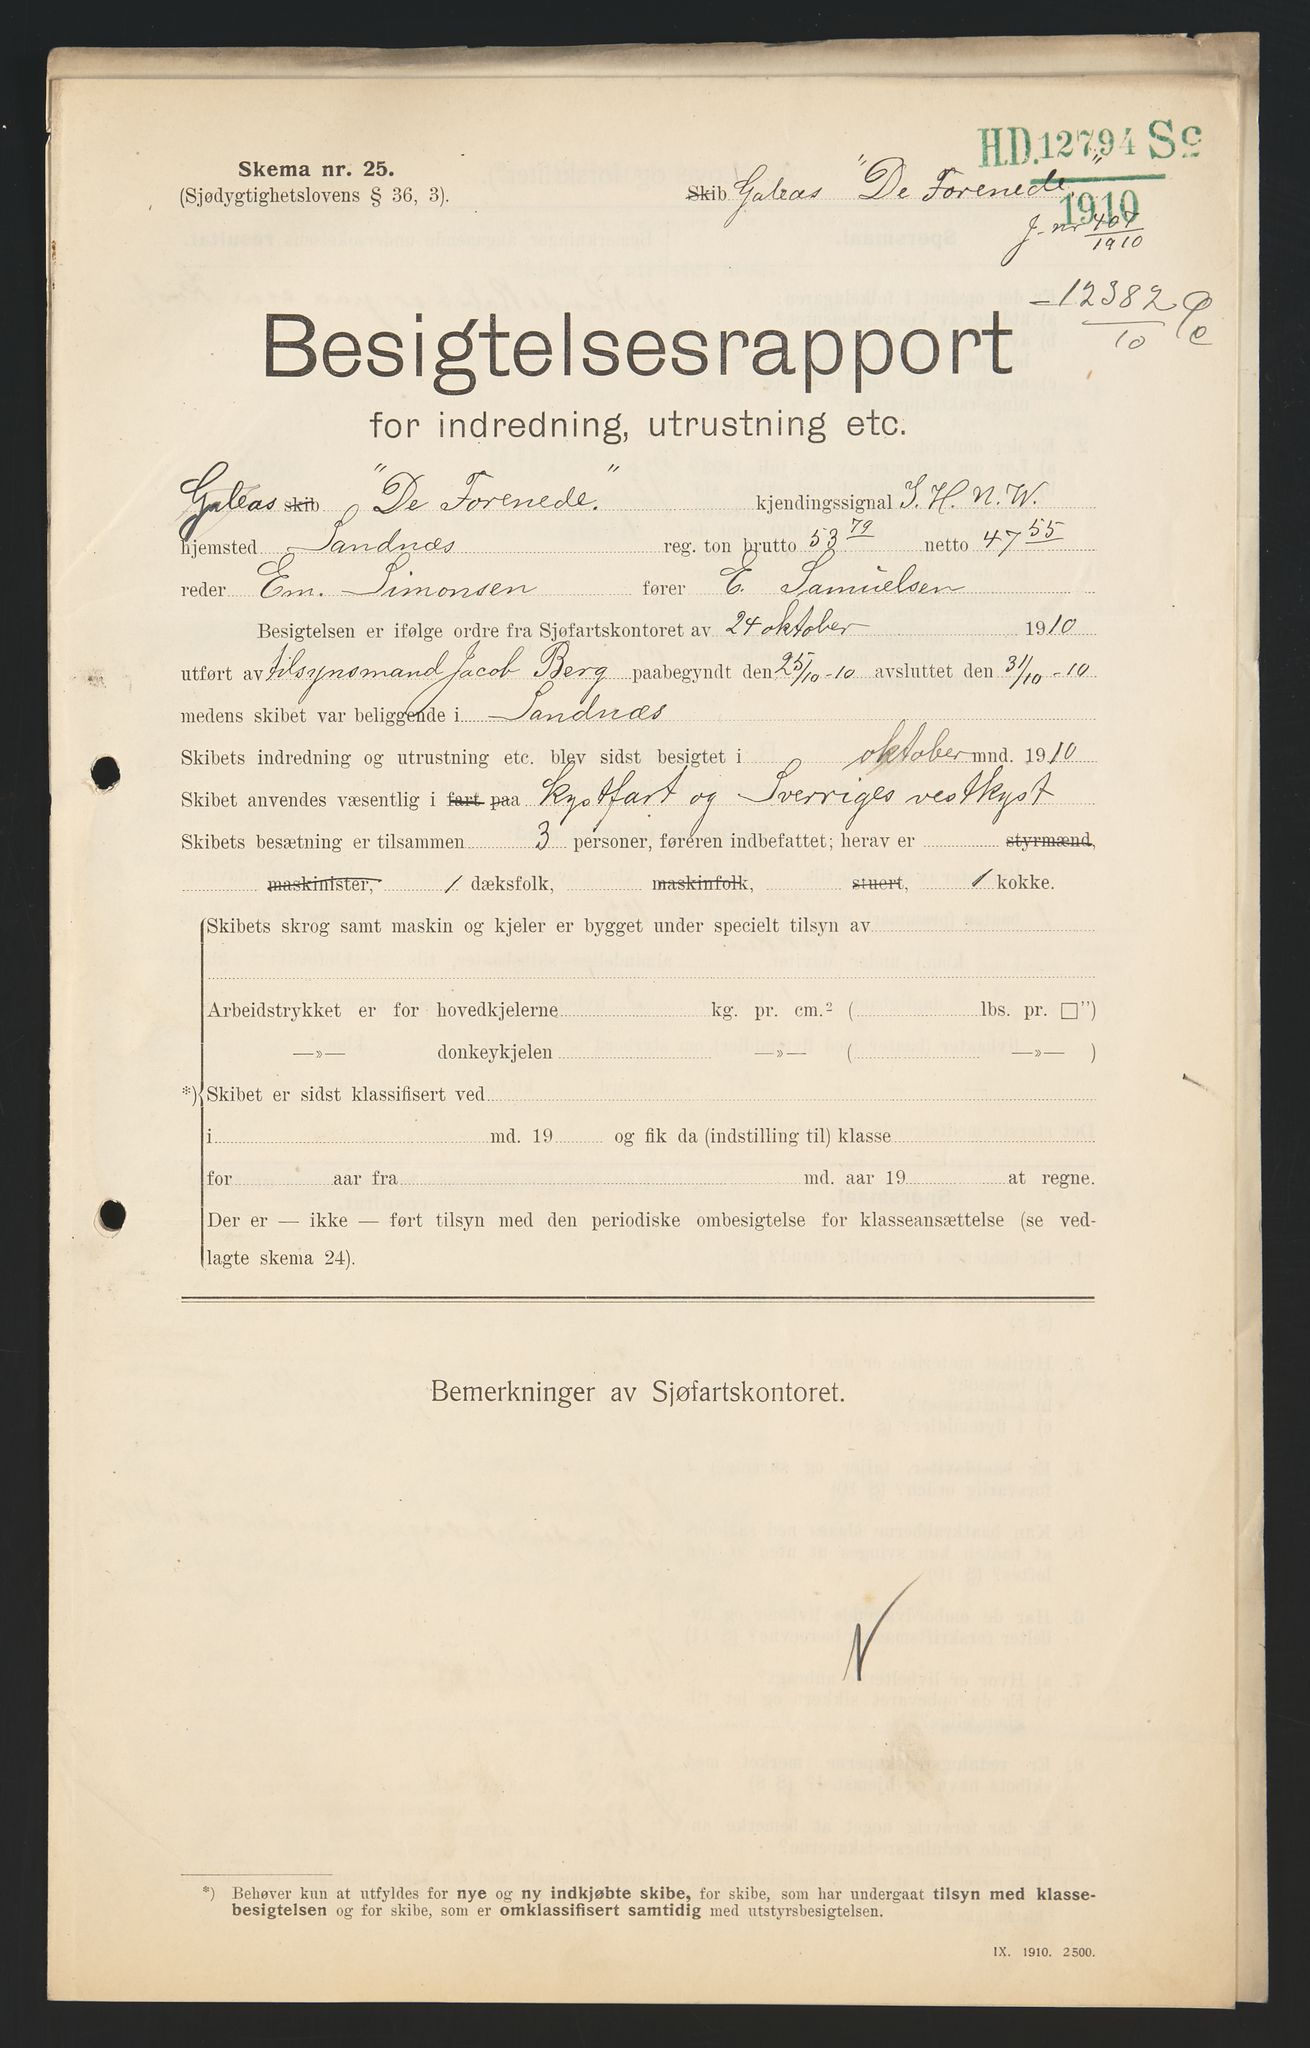 H.D. 12794 Sc
1910
Skema nr. 25.
(Sjødygtighetslovens § 36, 3).
Skib Galeas "De Forenede"
J. nr 407
1910
-12382
10
Besigtelsesrapport
for indredning, utrustning etc.
Galeas skib "De Forenede." kjendingssignal J. H. N. W.
hjemsted Sandnæs reg. ton brutto 53 79 netto 47 55
reder Em. Simonsen fører E. Samuelsen
Besigtelsen er ifølge ordre fra Sjøfartskontoret av 24 oktober 1910
utført av tilsynsmand Jacob Berg paabegyndt den 25/10-10 avsluttet den 31/10-10
medens skibet var beliggende i Sandnæs
Skibets indredning og utrustning etc. blev sidst besigtet i oktober mnd. 1910
Skibet anvendes væsentlig i fart paa Kystfart og Sverriges vestkyst
Skibets besætning er tilsammen 3 personer, føreren indbefattet; herav er styrmænd,
maskinister, 1 dæksfolk, maskinfolk, stuert, 1 kokke.
Skibets skrog samt maskin og kjeler er bygget under specielt tilsyn av
Arbeidstrykket er for hovedkjelerne kg. pr. cm.² ( lbs. pr. □")
—»— donkeykjelen —»— ( —»— )
*) Skibet er sidst klassifisert ved
i md. 19 og fik da (indstilling til) klasse
for aar fra md. aar 19 at regne.
Der er — ikke — ført tilsyn med den periodiske ombesigtelse for klasseansættelse (se ved-
lagte skema 24).
Bemerkninger av Sjøfartskontoret.
N
*) Behøver kun at utfyldes for nye og ny indkjøbte skibe, for skibe, som har undergaat tilsyn med klasse-
besigtelsen og for skibe, som er omklassifisert samtidig med utstyrsbesigtelsen.
IX. 1910. 2500.